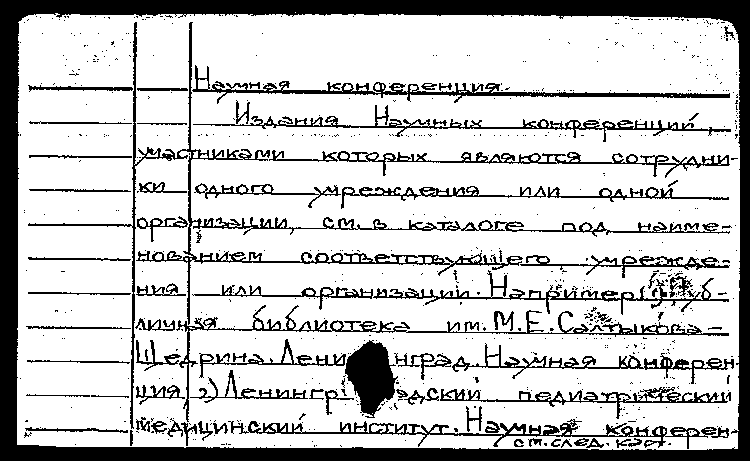 Научная конференция.
Издания Научных конференций,
участниками которых являются сотрудни-
ки одного учреждения или одной
организации, см. в каталоге под наиме-
нованием соответствующего учрежде-
ния или организации. Например: 1) Пуб-
личная библиотека им. М.Е. Салтыкова-
Щедрина. Ленинград. Научная конферен-
ция, 2) Ленинградский педиатрический
медицинский институт. Научная конферен-
см. след. карт.